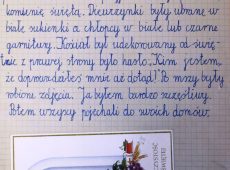 komunię świętą. Dziewczynki były ubrane w
białe sukienki a chłopcy w białe lub czarne
garnitury. Kościół był udekorowany od
z prawej strony było hasło. Kim jestem,
że doprowadziłeś mnie aż dotąd! Po mszy były
robione zdjęcia. Ja byłem bardzo szczęśliwy.
Potem wszyscy pojechali do swoich domów.